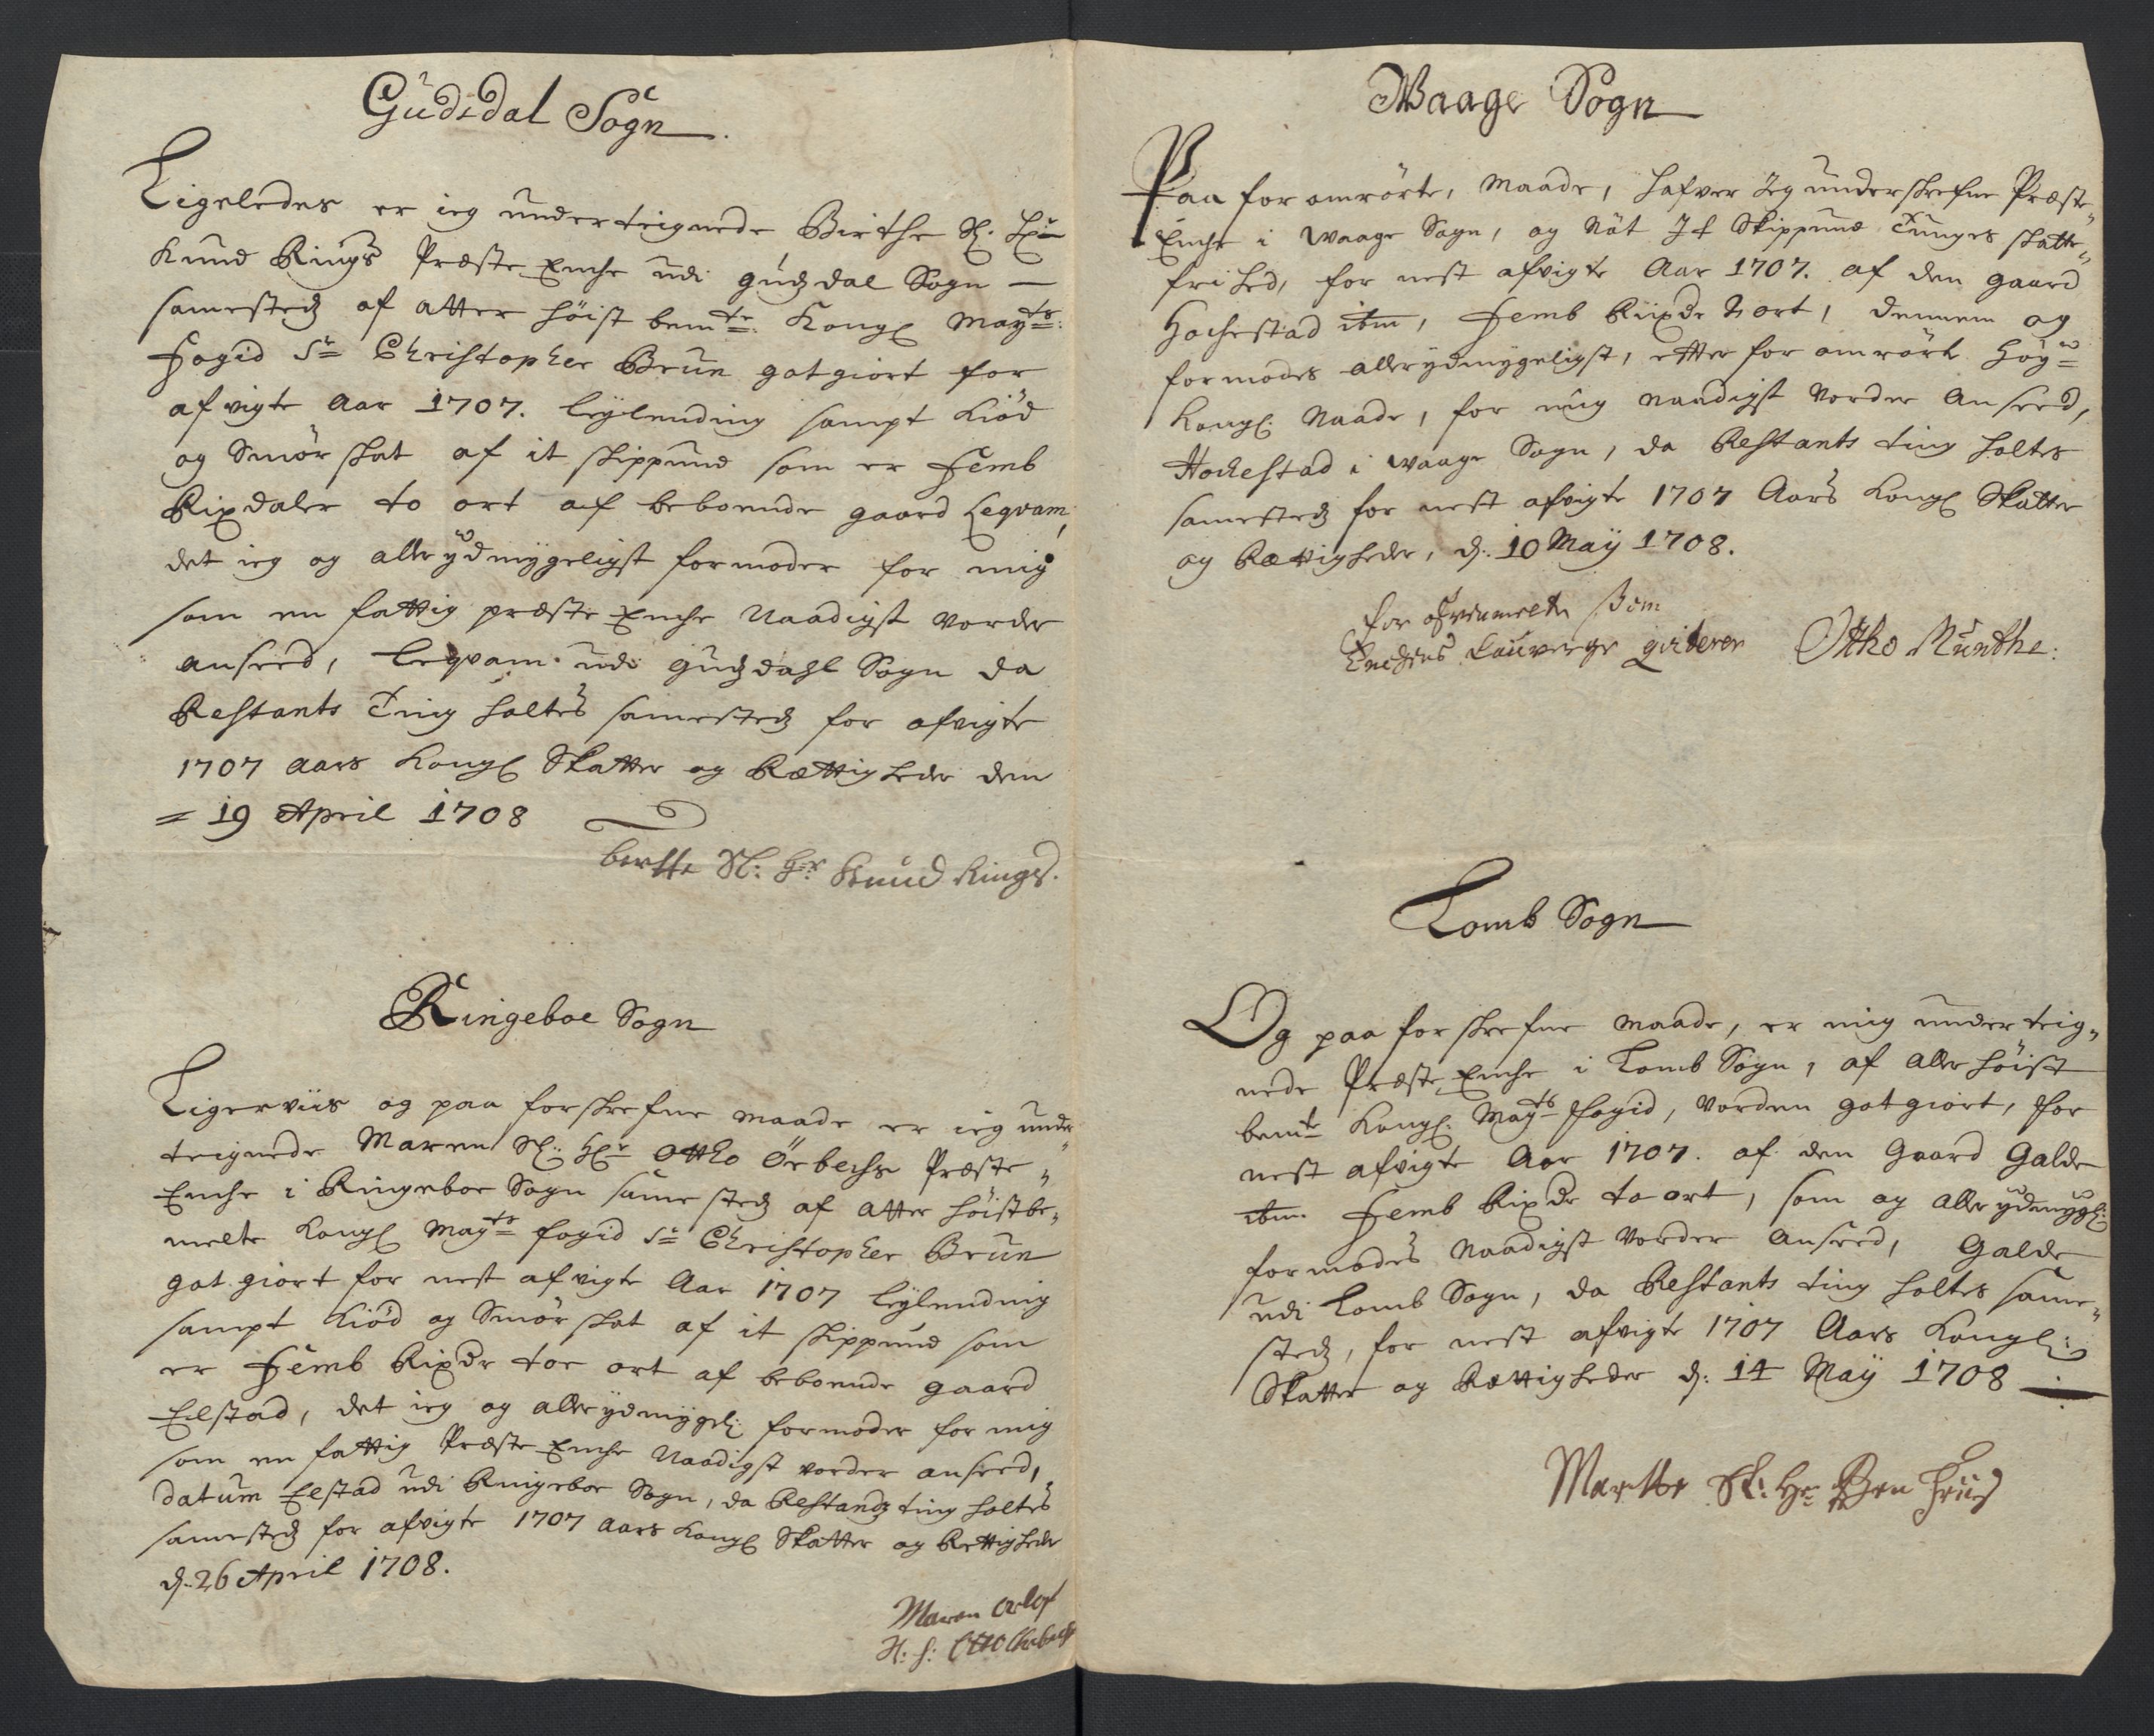 Gudsdal Sogn
Ligeledes er ieg underteignede Birthe Sl. Hr
Knud Rings Præste Enche udi gudsdal Sogn —
sammesteds af atter höist bemte: Kongl Mayts:
Fogid Sr Christopher Brun gotgiort for
afvigte Aar 1707. leylending sampt Kiöd
og Smör skat af it skippund som er Femb
Rixdaler to ort af beboende gaard Leqvam,
det ieg og allerydmygeligst formoder for mig
som en fattig præste Enche Naadigst vorder
anseed, Leqvam udi gudsdahl Sogn da
Restants Ting holtes sammesteds for afvigte
1707 aars Kongl Skatter og Rættigheder den
= 19 April 1708
berthe Sl: Hr: Knud Rings.
Ringeboe Sogn
Ligerviis og paa forskrefne maade er ieg under
teignede Maren Sl: Hr Ottho Örbechs Præste„
Enche i Ringeboe Sogn samme steds af atter höistbe„
melte Kongl Mayts fogid Sr Christopher Brun
gotgiort for nest afvigte Aar 1707 leylending
sampt Kiöd og Smör skat af it skippund som
er Femb Rixdr toe ort af beboende gaard
Elstad, det ieg og allerydmygel: formoder for mig
som en fattig Præste Enche Naadigst vorder anseed,
datum Elstad udi Ringeboe Sogn, da Restands ting holtes
sammesteds for afvigte 1707 aars Kongl Skatter og Rettigheder
d: 26 April 1708.
Maren
Sl: H: Otto
Waage Sogn
Paa for omrörte, Maade, hafver Jeg underskrefne Præste„
Enche i Waage Sogn, og Nöt Jt Skippund Tunges skatte„
frihed, for nest afvigte Aar 1707. af den gaard
Hochestad ibm, Femb Riixdr 2 ort, dennem og
formodes allerydmygeligst, efter for omrörte Höy
Kongl: Naade, for mig naadigst vorder Anseed,
Hochestad i Waage Sogn, da Restants ting holtes
sammesteds for nest afvigte 1707 Aars Kongl Skatter
og Rættigheder, d: 10 Maÿ 1708.
for ofvenmelte som
Enchens Lauverge Otto Munthe:
Lomb Sogn
Og paa forskrefne Maade, er mig underteig„
nede Præste Enche i Lomb Sogn, af Aller höist
bemte Kongl: Mayts fogid, vorden gotgiort, for
nest afvigte Aar 1707. af den Gaard Galde
ibm. Femb Rixdr to ort, som og Aller ydmygl:
formodes Naadigst vorder Anseed, Galde
udi Lomb Sogn, da Restants ting holtes samme„
steds, for nest afvigte 1707 Aars Kongl:
Skatter og Rættigheder d: 14 Maÿ 1708
Marthe Sl: Hr